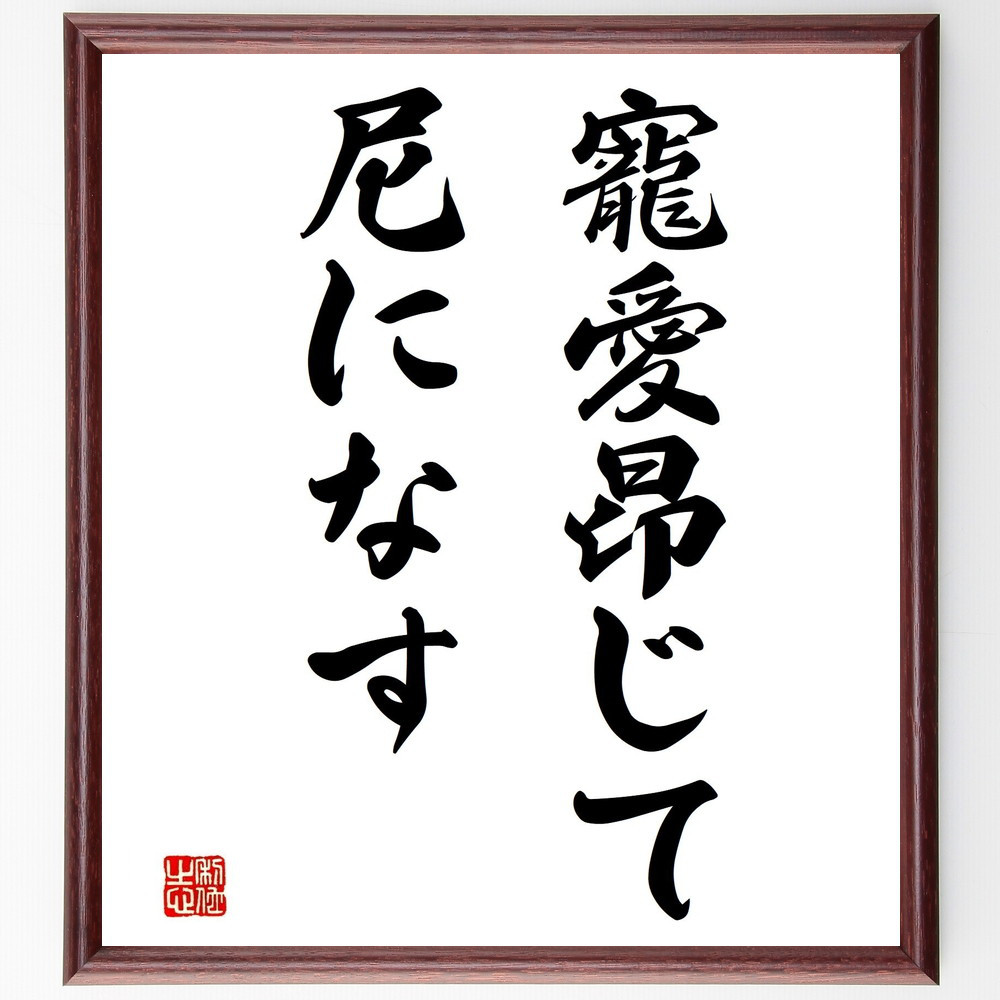 寵愛昂じて
尼になす